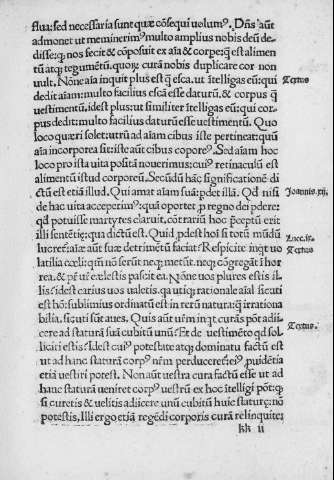 flua: sed necessaria sunt quæ cõsequi uolumꝰ. Dñs aũt
admonet ut meminerimꝰ multo amplius nobis deũ de-
disse: q nos fecit & cõposuit ex aĩa & corpe: q̃ est alimen
tũ atq; tegumẽtũ. quoꝝ curã nobis duplicare cor non
uult. Nõne aĩa inquit plus est q̃ esca. ut ĩtelligas eũ: qui Textus
dedit aĩam: multo facilius escã esse daturũ, & corpus q̃
uestimẽtũ. idest plus: ut similiter ĩtelligas eũ: qui cor-
pus dedit: multo facilius daturũ esse uestimentũ. Quo
loco quæri solet: utrũ ad aĩam cibus iste pertineat: quũ
aĩa incorporea sit: iste aũt cibus corporeꝰ. Sed aĩam hoc
loco pro ista uita positã nouerimus: cuiꝰ retinaculũ est
alimentũ istud corporeũ. Secũdũ hãc significationẽ di-
ctũ est etiã illud. Qui amat aĩam suã: pdet illã. Qđ nisi Ioannis.xij.
de hac uita acceperimꝰ: quã oportet p regno dei pdere:
qđ potuisse martyres claruit, cõtrariũ hoc p̃ceptũ erit
illi sentẽtię: qua dictũ est. Quid pdest hoĩ si totũ mũdũ
lucret: aĩæ aũt suæ detrimẽtũ faciat? Respicite inqt uo Luce.ix.
latilia cœli: qm̃ nõ serũt neq; metũt. neq; cõgregãt ĩ hor Textus
rea. & pr̃ ur̃ cælestis pascit ea. Nõne uos plures estis il-
lis? idest carius uos ualetis. qa utiq; rationale aĩal. sicuti
est hõ: sublimius ordinatũ est in reꝝ natura: q̃ irrationa
bilia. sicuti sũt aues. Quis aũt ur̃m inqt curãs põt adii-
cere ad staturã suã cubitũ unũ? Et de uestimẽto qđ sol- Textus
liciti estis? Idest cuiꝰ potestate atq; dominatu factũ est
ut ad hanc staturã corpꝰ ur̃m perduceret: eiꝰ puidẽtia
etiã uestiri potest. Non aũt uestra cura factũ esse ut ad
hanc staturã ueniret corpꝰ uestrũ ex hoc ĩtelligi põt: q
si curetis & uelitis adiicere unũ cubitũ huic staturę: nõ
potestis. Illi ergo etiã regẽdi corporis curã relinquite:
kk ii